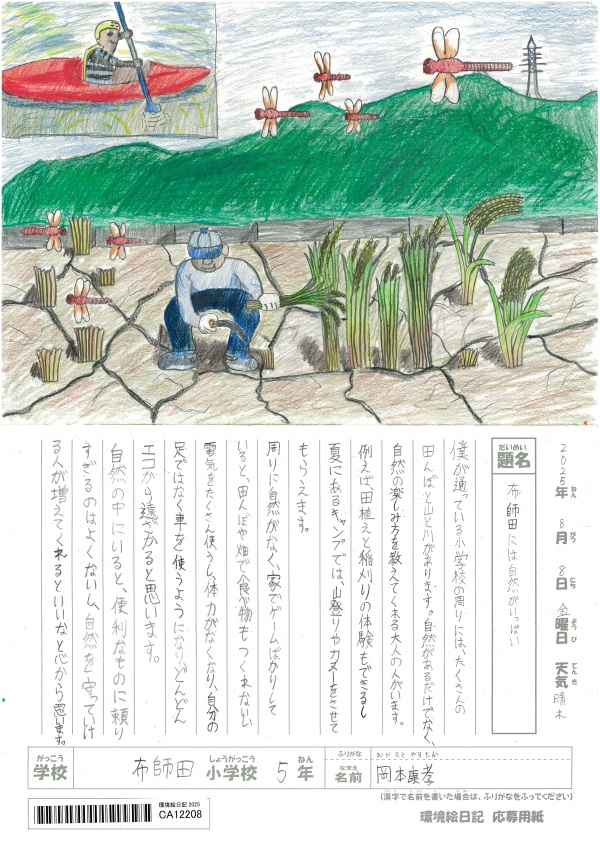 2025年 8月 8日 金曜日 天気 晴れ
ねん がつ にち ようび てんき
だいめい
題名 布師田には自然がいっぱい
僕が通っている小学校の周りには、たくさんの
田んぼと山と川があります。自然があるだけでなく、
自然の楽しみ方を教えてくれる大人の人がいます。
例えば、田植えと稲刈りの体験もできるし
夏にあるキャンプでは、山登りやカヌーをさせて
もらえます。
周りに自然がなく、家でゲームばかりして
いると、田んぼや畑で食べ物もつくれないし、
電気をたくさん使うし、体力がなくなり、自分の
足ではなく車を使うようになり、どんどん
エコから遠ざかると思います。
自然の中にいると、便利なものに頼り
すぎるのはよくないし、自然を守ってい
る人が増えてくれるといいなと心から思います。
がっこう しょうがっこう ねん
学校 布師田 小学校 5年
ふりがな おかもと やすたか
なまえ
名前 岡本康孝
(漢字で名前を書いた場合は、ふりがなをふってください)
環境絵日記 2025
CA12208
環境絵日記 応募用紙